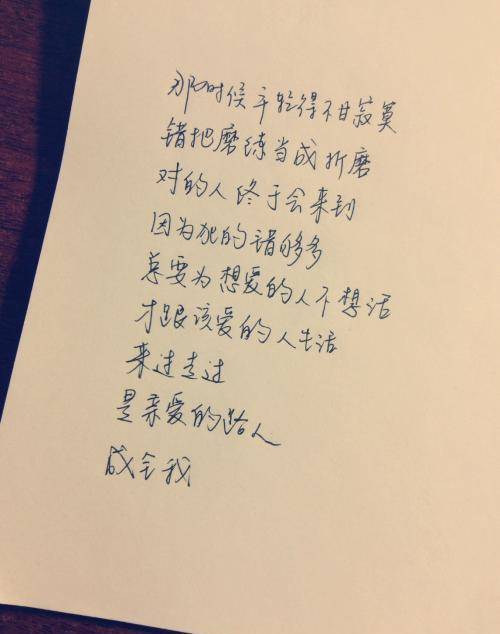 那时候年轻得不甘寂寞
错把磨练当成折磨
对的人终于会来到
因为犯的错够多
总要为想爱的人不想活
才跟该爱的人生活
来过走过
是亲爱的路人
成全我